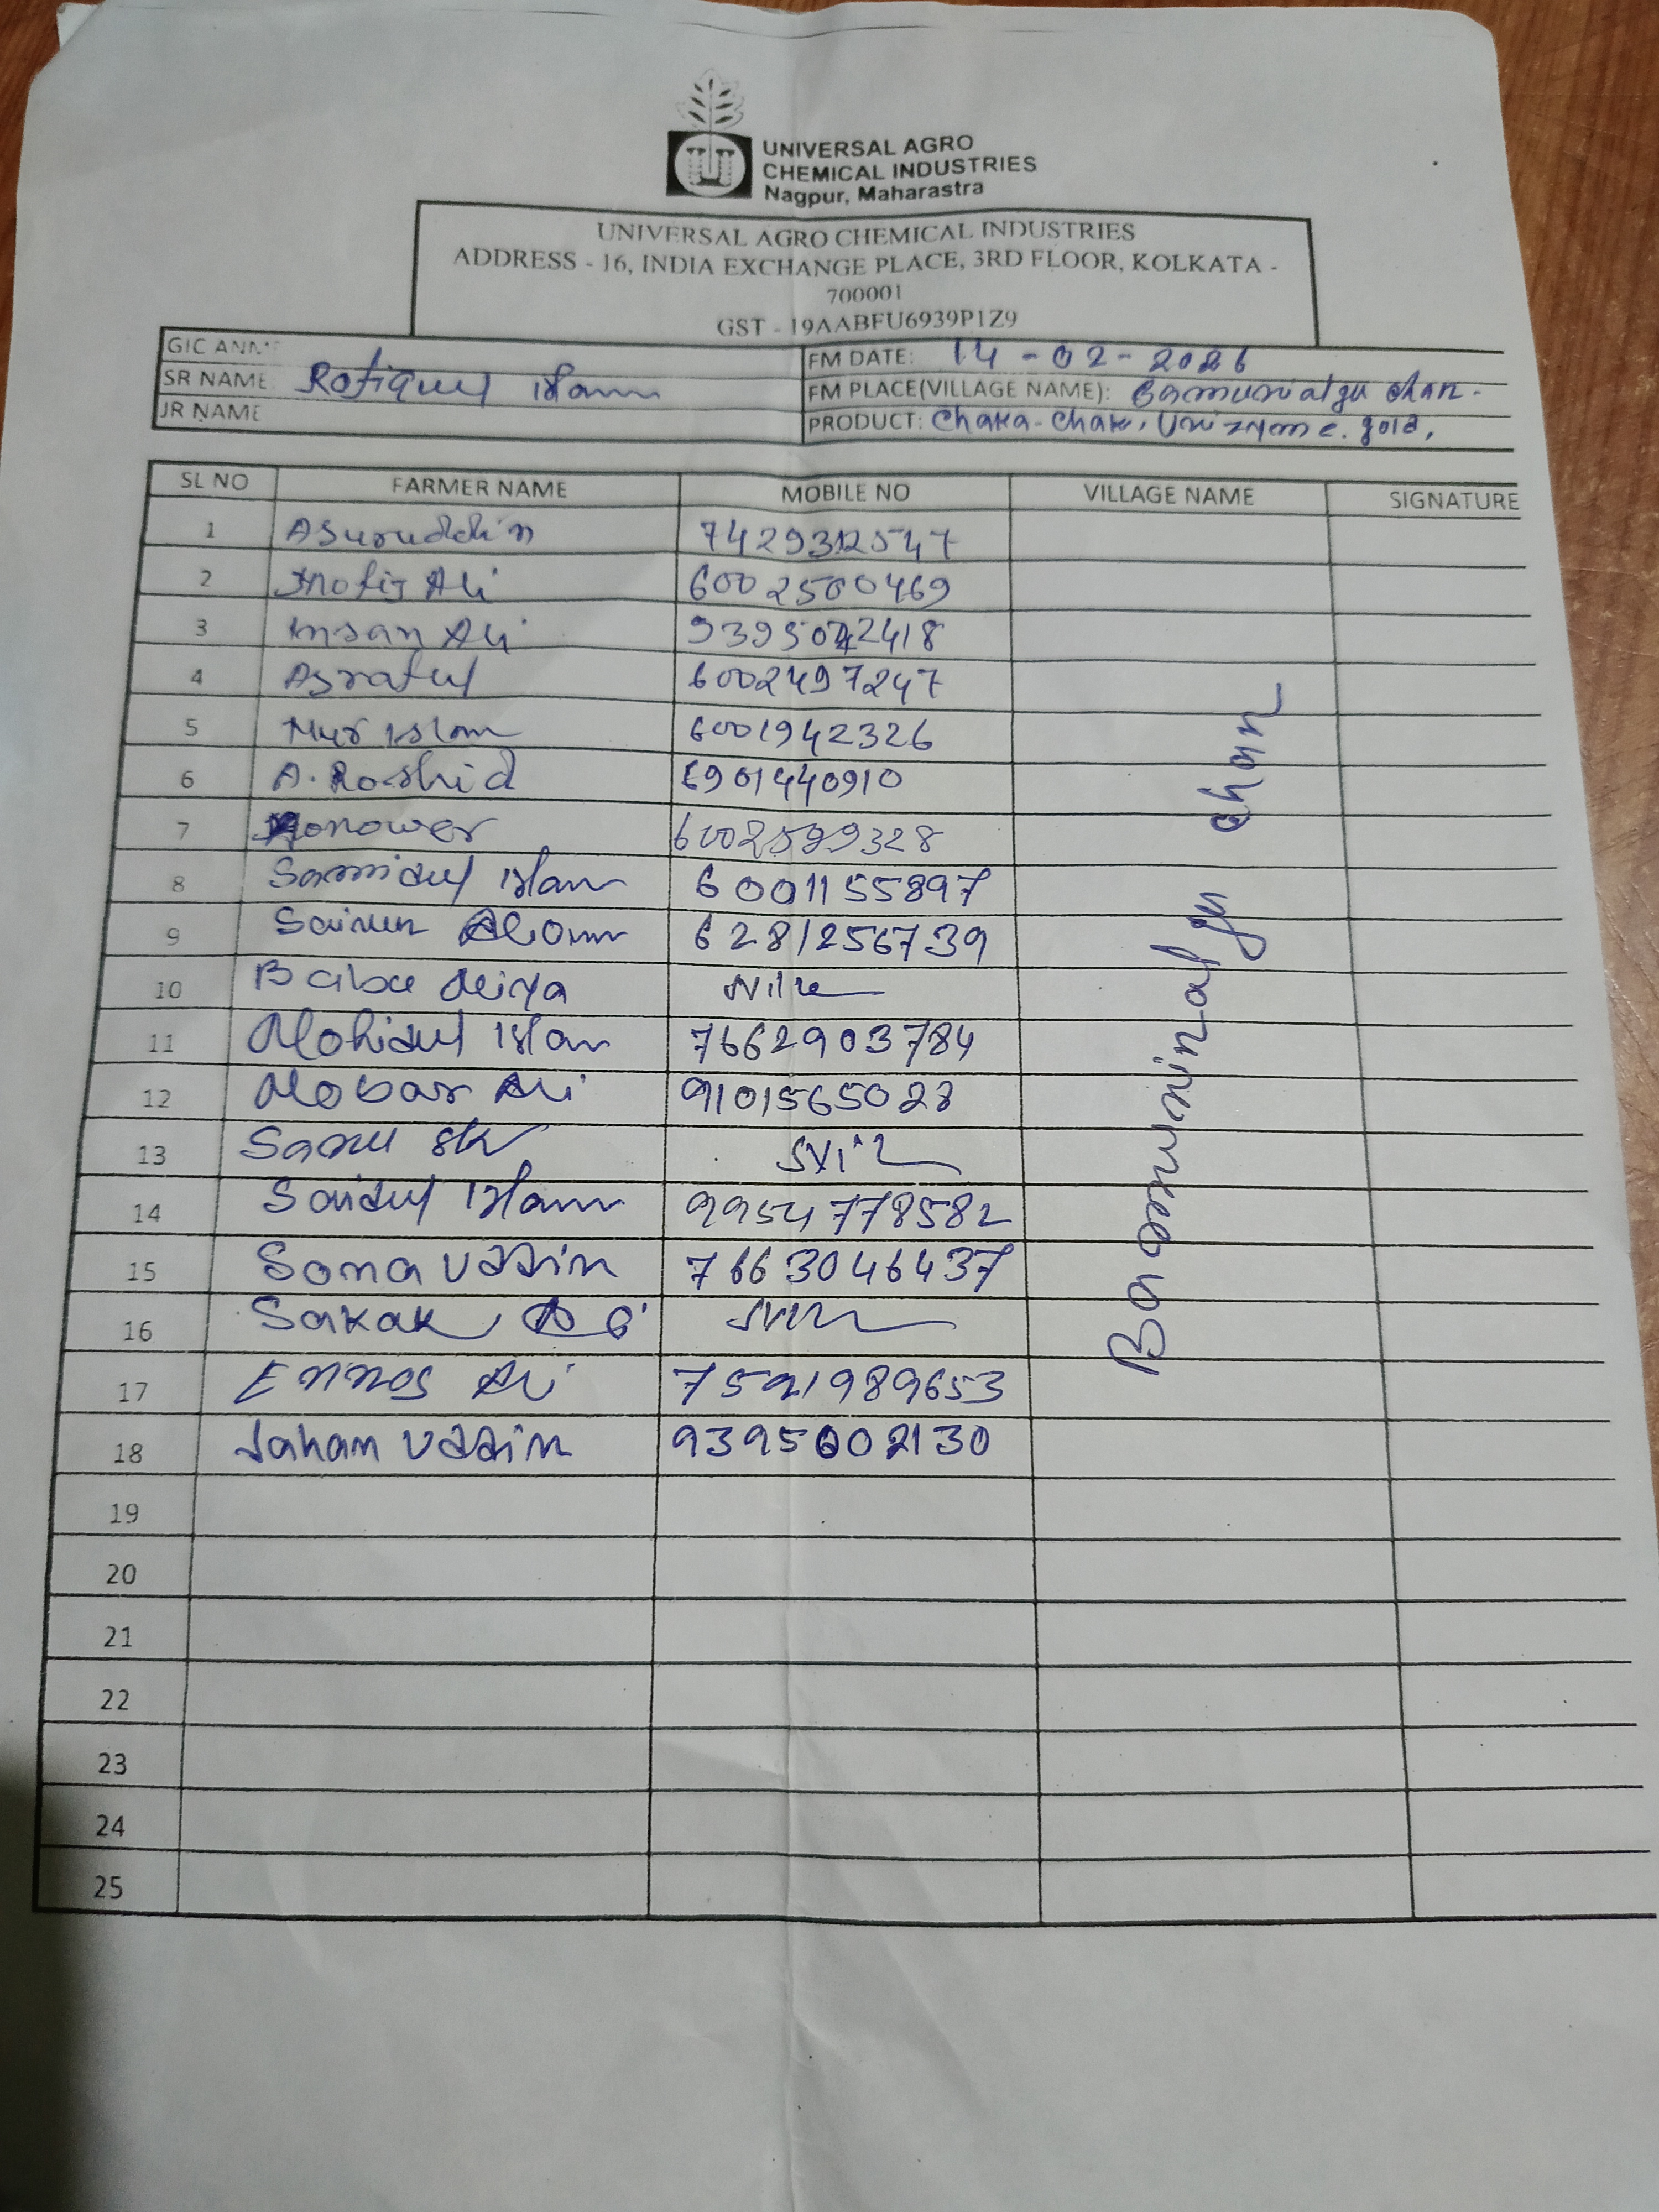 UNIVERSAL AGRO
CHEMICAL INDUSTRIES
Nagpur, Maharastra
UNIVERSAL AGRO CHEMICAL INDUSTRIES
ADDRESS - 16, INDIA EXCHANGE PLACE, 3RD FLOOR, KOLKATA -
700001
GST - 19AABFU6939P1Z9
GIC ANME
SR NAME: Rofiqul Islam
JR NAME
FM DATE: 14-02-2026
FM PLACE(VILLAGE NAME): Chan.
PRODUCT: Chaka-Chak, Unizyme gold,
SL NO FARMER NAME MOBILE NO VILLAGE NAME SIGNATURE
1 Asuruddin 7429312547
2 Ali 6002500469
3 Insan Ali 9395042418
4 Asraful 6002497247
5 Nur Islam 6001942326
6 A. Roshid 6901440910
7 Monower 6002599328
8 Samidul Islam 6001155897
9 Alom 6281256739
10 Babu
11 Mohidul Islam 7662903784
12 Mobar Ali 9101565028
13 Sanu Sk
14 Saidul Islam 9954778582
15 Sona Uddin 7663046437
16
17 Ennos Ali 7591989653
18 Jahan Uddin 9395602130
19
20
21
22
23
24
25